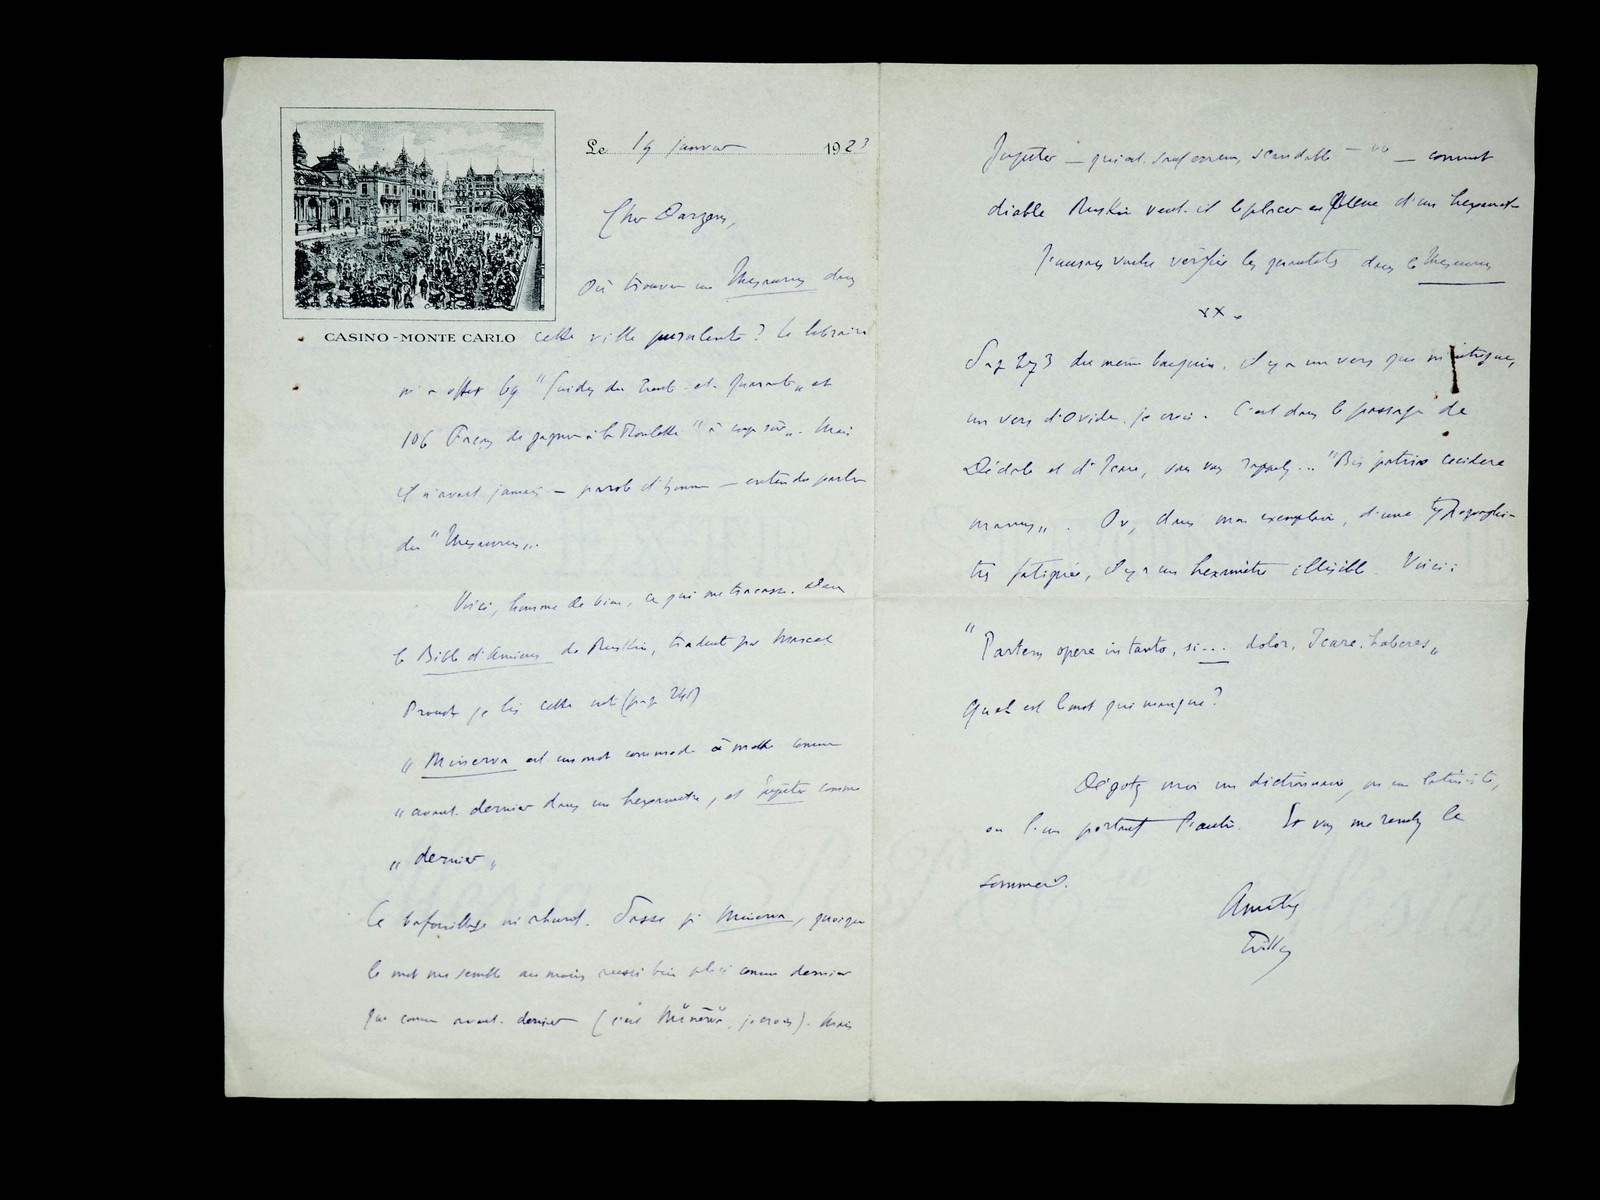 Le 19 janvier 1923
Cher Darzens,
Où trouver un Thesaurus dans
CASINO-MONTE CARLO
cette ville purulente ? Le libraire
m'a offert 69 "Guides du Trente-et-Quarante" et
106 Façons de gagner à la Roulette "à coup sûr". Mais
il n'avait jamais — parole d'honneur — entendu parler
du "Thesaurus".
Voici, homme de bien, ce qui me tracasse. Dans
la Bible d'Amiens de Ruskin, traduit par Marcel
Proust je lis cette note (page 241)
" Minerva est un mot commode à mettre comme
" avant-dernier dans un hexamètre, et Jupiter comme
" dernier "
Ce bafouillage m'ahurit. Passe pr Minerva, quoique
le mot me semble au moins aussi bien placé comme dernier
que comme avant-dernier (c'est Mĭnērvă, je crois). Mais
Jupiter — qui est, sauf erreur, scandable – ᴗᴗ — comment
diable Ruskin veut-il le placer en fin d'un hexamèt
J'aurais voulu vérifier les quantités dans le Thesaurus
xx.
Page 273 du même bouquin, il y a un vers qui m'intrigue,
un vers d'Ovide, je crois. C'est dans le passage de
Dédale et d'Icare, vous vous rappelez... "Bis patriæ cecidere
manus". Or, dans mon exemplaire, d'une typographie
très fatiguée, il y a un hexamètre illisible. Voici :
" Partem opere in tanto, si... dolor, Icare, haberes "
Quel est le mot qui manque ?
Dégotez moi un dictionnaire, ou un latiniste,
ou l'un portant l'autre. Et vous me rendrez le
sommeil.
Amitiés
Willy